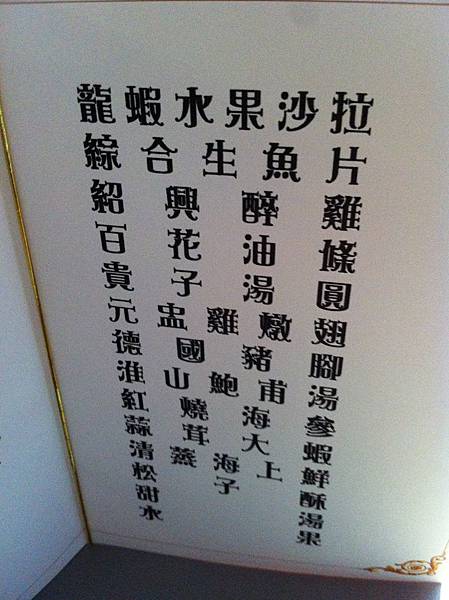 龍蝦水果沙拉
綜合生魚片
紹興醉雞
百花油條
貴子湯圓
元盅雞燉翅
德國豬腳
淮山鮑甫湯
紅燒海參
蒜茸大蝦
清蒸海上鮮
松子酥
甜湯
水果